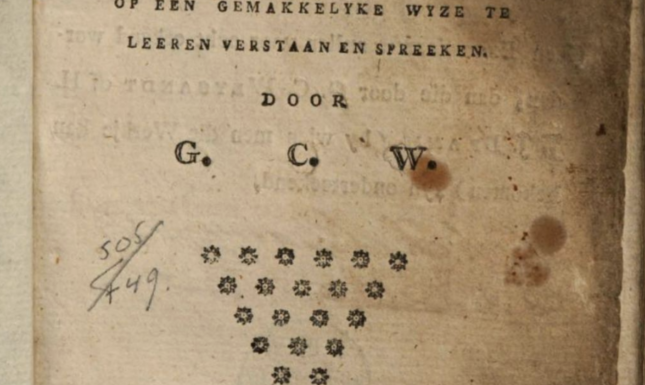 OP EEN GEMAKKELYKE WYZE TE
LEEREN VERSTAAN EN SPREEKEN.
DOOR
G. C. W.
505/
749.